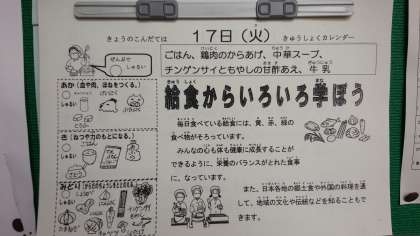 きょうのこんだては
17日(火)
きゅうしょくカレンダー
ごはん、鶏肉のからあげ、中華スープ、
チンゲンサイともやしの甘酢あえ、牛乳
ぜんぶで
しゅるい
あか(血や肉、ほねをつくる。)
しゅるい
き(ねつや力のもとになる。)
しゅるい
みどり(からだのちょうしをととのえる。)
しゅるい
給食からいろいろ学ぼう
毎日食べている給食には、黄、赤、緑の
食べ物がそろっています。
みんなの心も体も健康に成長することが
できるように、栄養のバランスがとれた食事
に、なっています。
また、日本各地の郷土食や外国の料理を通
して、地域の文化や伝統などを知ることもで
きます。